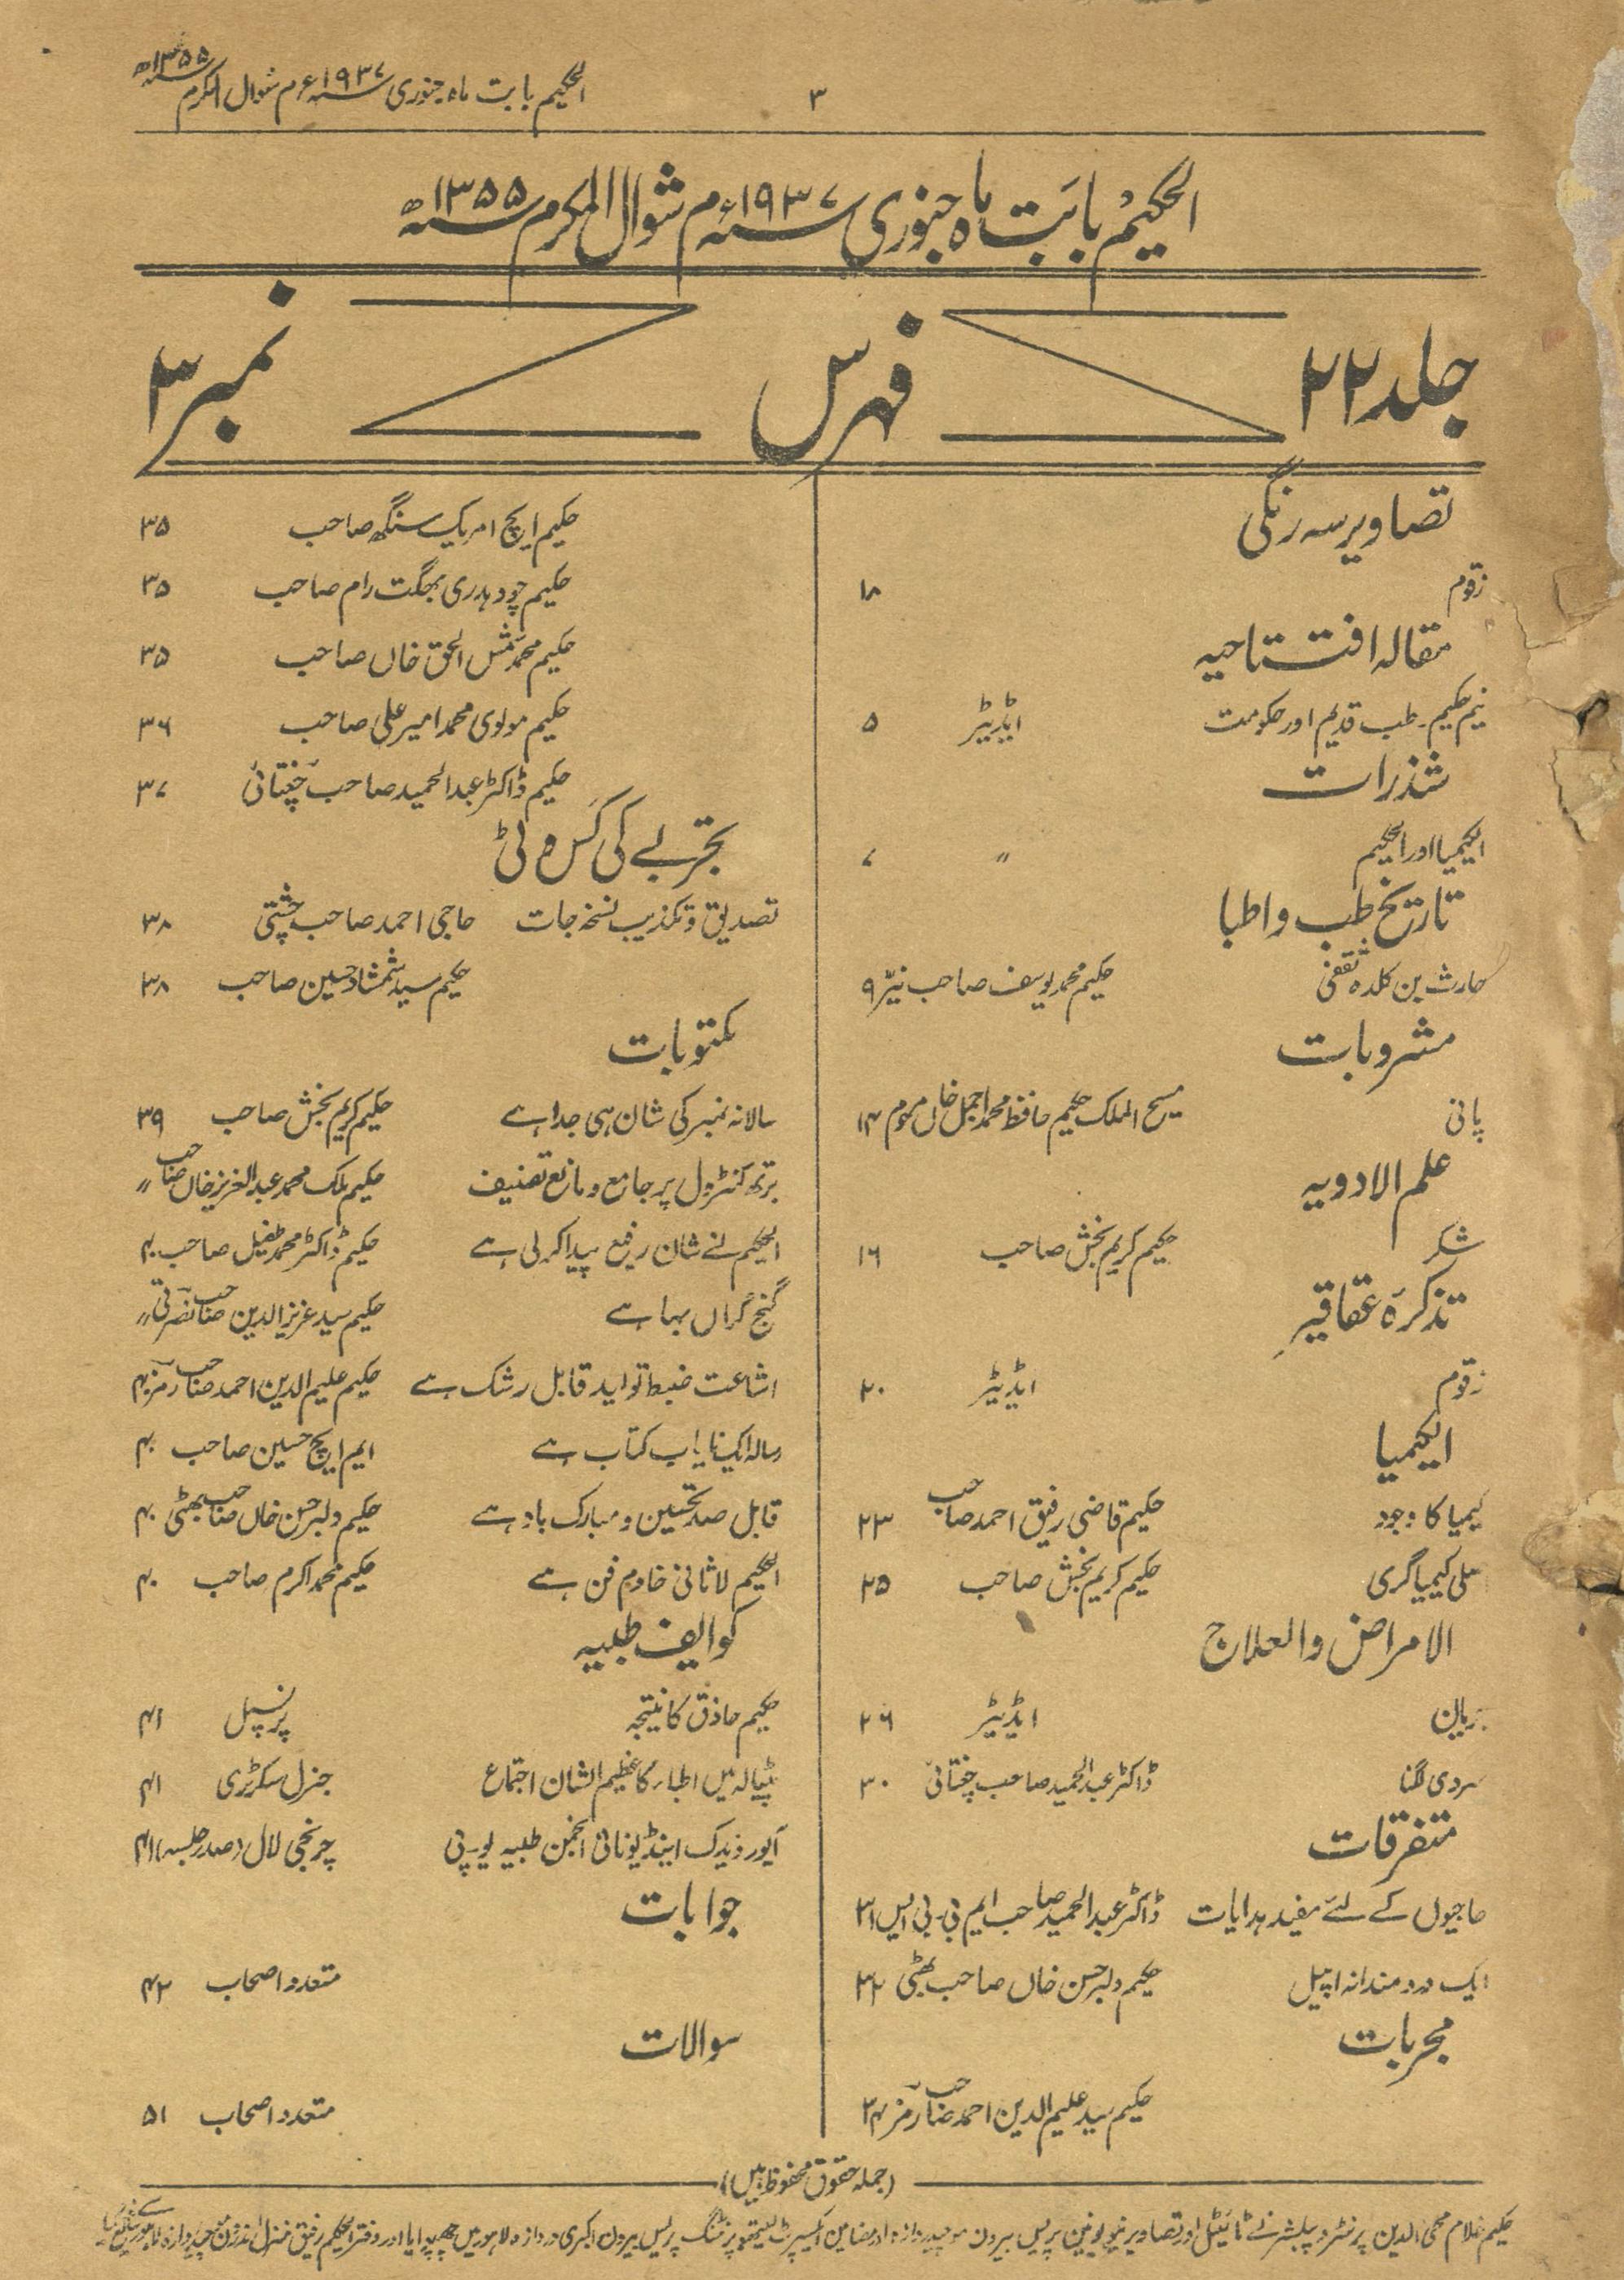 الحکیم بابت ماہ جنوری سنہ ۱۹۳۷ء م شوال المکرم سنہ ۱۳۵۵ھ
۳
الحکیم بابت ماہ جنوری سنہ ۱۹۳۷ء م شوال المکرم سنہ ۱۳۵۵ھ
جلد ۲۲ فہرس نمبر ۳
تصاویر سہ رنگی
زقوم ۱۸
مقالہ افتتاحیہ
نیم حکیم۔ طب قدیم اور حکومت ایڈیٹر ۵
شذرات
الکیمیا اور الحکیم " ۷
تاریخ طب و اطبا
حارث بن کلدہ ثقفی حکیم محمد یوسف صاحب نیّر ۹
مشروبات
پانی مسیح الملک حکیم حافظ محمد اجمل خاں مرحوم ۱۴
علم الادویہ
شکر حکیم کریم بخش صاحب ۱۶
تذکرہ عقاقیر
زقوم ایڈیٹر ۲۰
الکیمیا
کیمیا کا وجود حکیم قاضی رفیق احمد صاحب ۲۳
عملی کیمیا گری حکیم کریم بخش صاحب ۲۵
الامراض والعلاج
جریان ایڈیٹر ۲۶
سردی لگنا ڈاکٹر عبدالحمید صاحب چغتائی ۳۰
متفرقات
حاجیوں کے لئے مفید ہدایات ڈاکٹر عبدالحمید صاحب ایم بی۔ بی ایس ۳۱
ایک دردمندانہ اپیل حکیم دلبر حسن خاں صاحب بھٹی ۳۲
مجربات
حکیم سید علیم الدین احمد صاحب رمز ۳۴
حکیم ایچ امریک سنگھ صاحب ۳۵
حکیم چودہدری بھگت رام صاحب ۳۵
حکیم محمد شمس الحق خاں صاحب ۳۵
حکیم مولوی محمد امیر علی صاحب ۳۶
حکیم ڈاکٹر عبدالحمید صاحب چغتائی ۳۷
تجربے کی کسوٹی
تصدیق و تکذیب نسخہ جات حاجی احمد صاحب چشتی ۳۸
حکیم سید شمشاد حسین صاحب ۳۸
مکتوبات
سالانہ نمبر کی شان ہی جدا ہے حکیم کریم بخش صاحب ۳۹
برتھ کنٹرول پر جامع و مانع تصنیف حکیم ملک محمد عبدالعزیز خاں صاحب "
الحکیم نے شان رفیع پیدا کر لی ہے حکیم ڈاکٹر محمد طفیل صاحب ۴۰
گنج گراں بہا ہے حکیم سید عزیز الدین صاحب نصرتی "
اشاعت ضبط تولید قابل رشک ہے حکیم علیم الدین احمد صاحب رمز ۴۰
رسالہ ایک نایاب کتاب ہے ایم ایچ حسین صاحب ۴۰
قابل صد تحسین و مبارک باد ہے حکیم دلبر حسن خاں صاحب بھٹی ۴۰
الحکیم لاثانی خادم فن ہے حکیم محمد اکرم صاحب ۴۰
کوایف طبیہ
حکیم حاذق کا نتیجہ پرنسپل ۴۱
پٹیالہ میں اطباء کا عظیم الشان اجتماع جنرل سکرٹری ۴۱
آیورویدک اینڈ یونانی انجمن طبیہ یو۔پی چرنجی لال (صدر جلسہ) ۴۱
جوابات
متعدد اصحاب ۴۲
سوالات
متعدد اصحاب ۵۱
(جملہ حقوق محفوظ ہیں)
حکیم غلام محی الدین پرنٹر و پبلشر نے ٹائیٹل اور تصاویر نیو یونین پریس بیرون موچیدروازہ اور مضامین ایکسپرٹ لیتھو پرنٹنگ پریس بیرون اکبری دروازہ لاہور میں چھپوایا اور دفتر الحکیم رفیق منزل اندرون موچیدروازہ لاہور سے شائع کیا